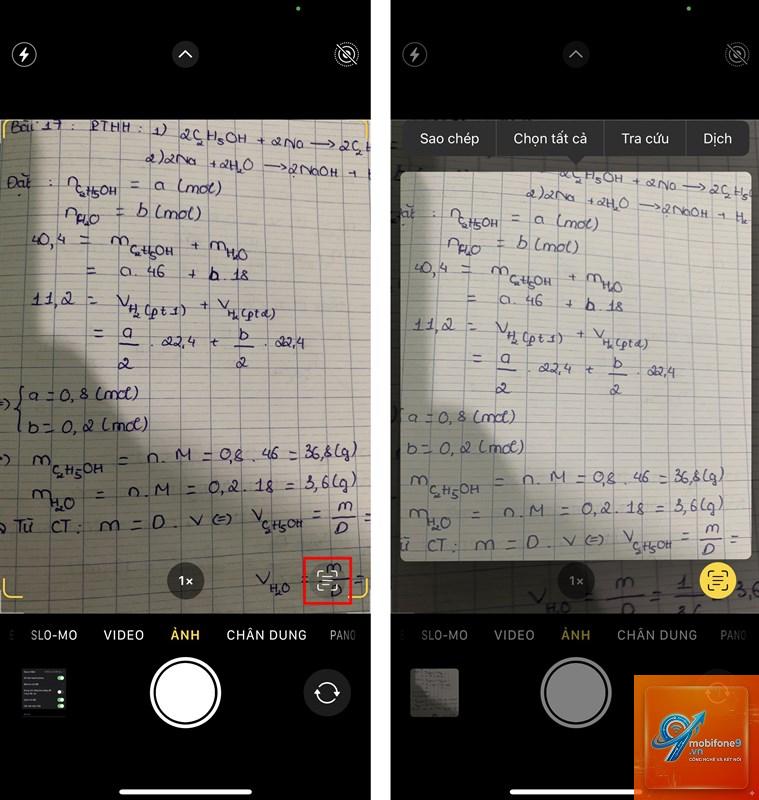 Bài 17 : PTHH : 1) 2C₂H₅OH + 2Na → 2C₂H
2) 2Na + 2H₂O → 2NaOH + H
Đặt : nC₂H₅OH = a (mol)
nH₂O = b (mol)
40,4 = mC₂H₅OH + mH₂O
= a. 46 + b. 18
11,2 = VH₂(pt1) + VH₂(pt2)
= a/2 . 22,4 + b/2 . 22,4
=> { a = 0,8 (mol)
b = 0,2 (mol)
=) mC₂H₅OH = n. M = 0,8 . 46 = 36,8 (g)
mH₂O = n. M = 0,2 . 18 = 3,6 (g)
Từ CT: m = D . V (=) VC₂H₅OH = m/D =
VH₂O = m/D =
1×
SLO-MO VIDEO ẢNH CHÂN DUNG PANO
Sao chép Chọn tất cả Tra cứu Dịch
2C₂H₅OH + 2Na → 2C₂H₅O
2) 2Na + 2H₂O → 2NaOH + H₂
Đặt : nC₂H₅OH = a (mol)
nH₂O = b (mol)
40,4 = mC₂H₅OH + mH₂O
= a. 46 + b. 18
11,2 = VH₂(pt1) + VH₂(pt2)
= a/2 . 22,4 + b/2 . 22,4
{ a = 0,8 (mol)
b = 0,2 (mol)
mC₂H₅OH = n. M = 0,8 . 46 = 36,8 (g)
mH₂O = n. M = 0,2 . 18 = 3,6 (g)
Từ CT: m = D . V (=) VC₂H₅OH = m/D =
VH₂O = m/D = 3,6
1×
SLO-MO VIDEO ẢNH CHÂN DUNG PANO
mobifone9
.vn
CÔNG NGHỆ VÀ KẾT NỐI